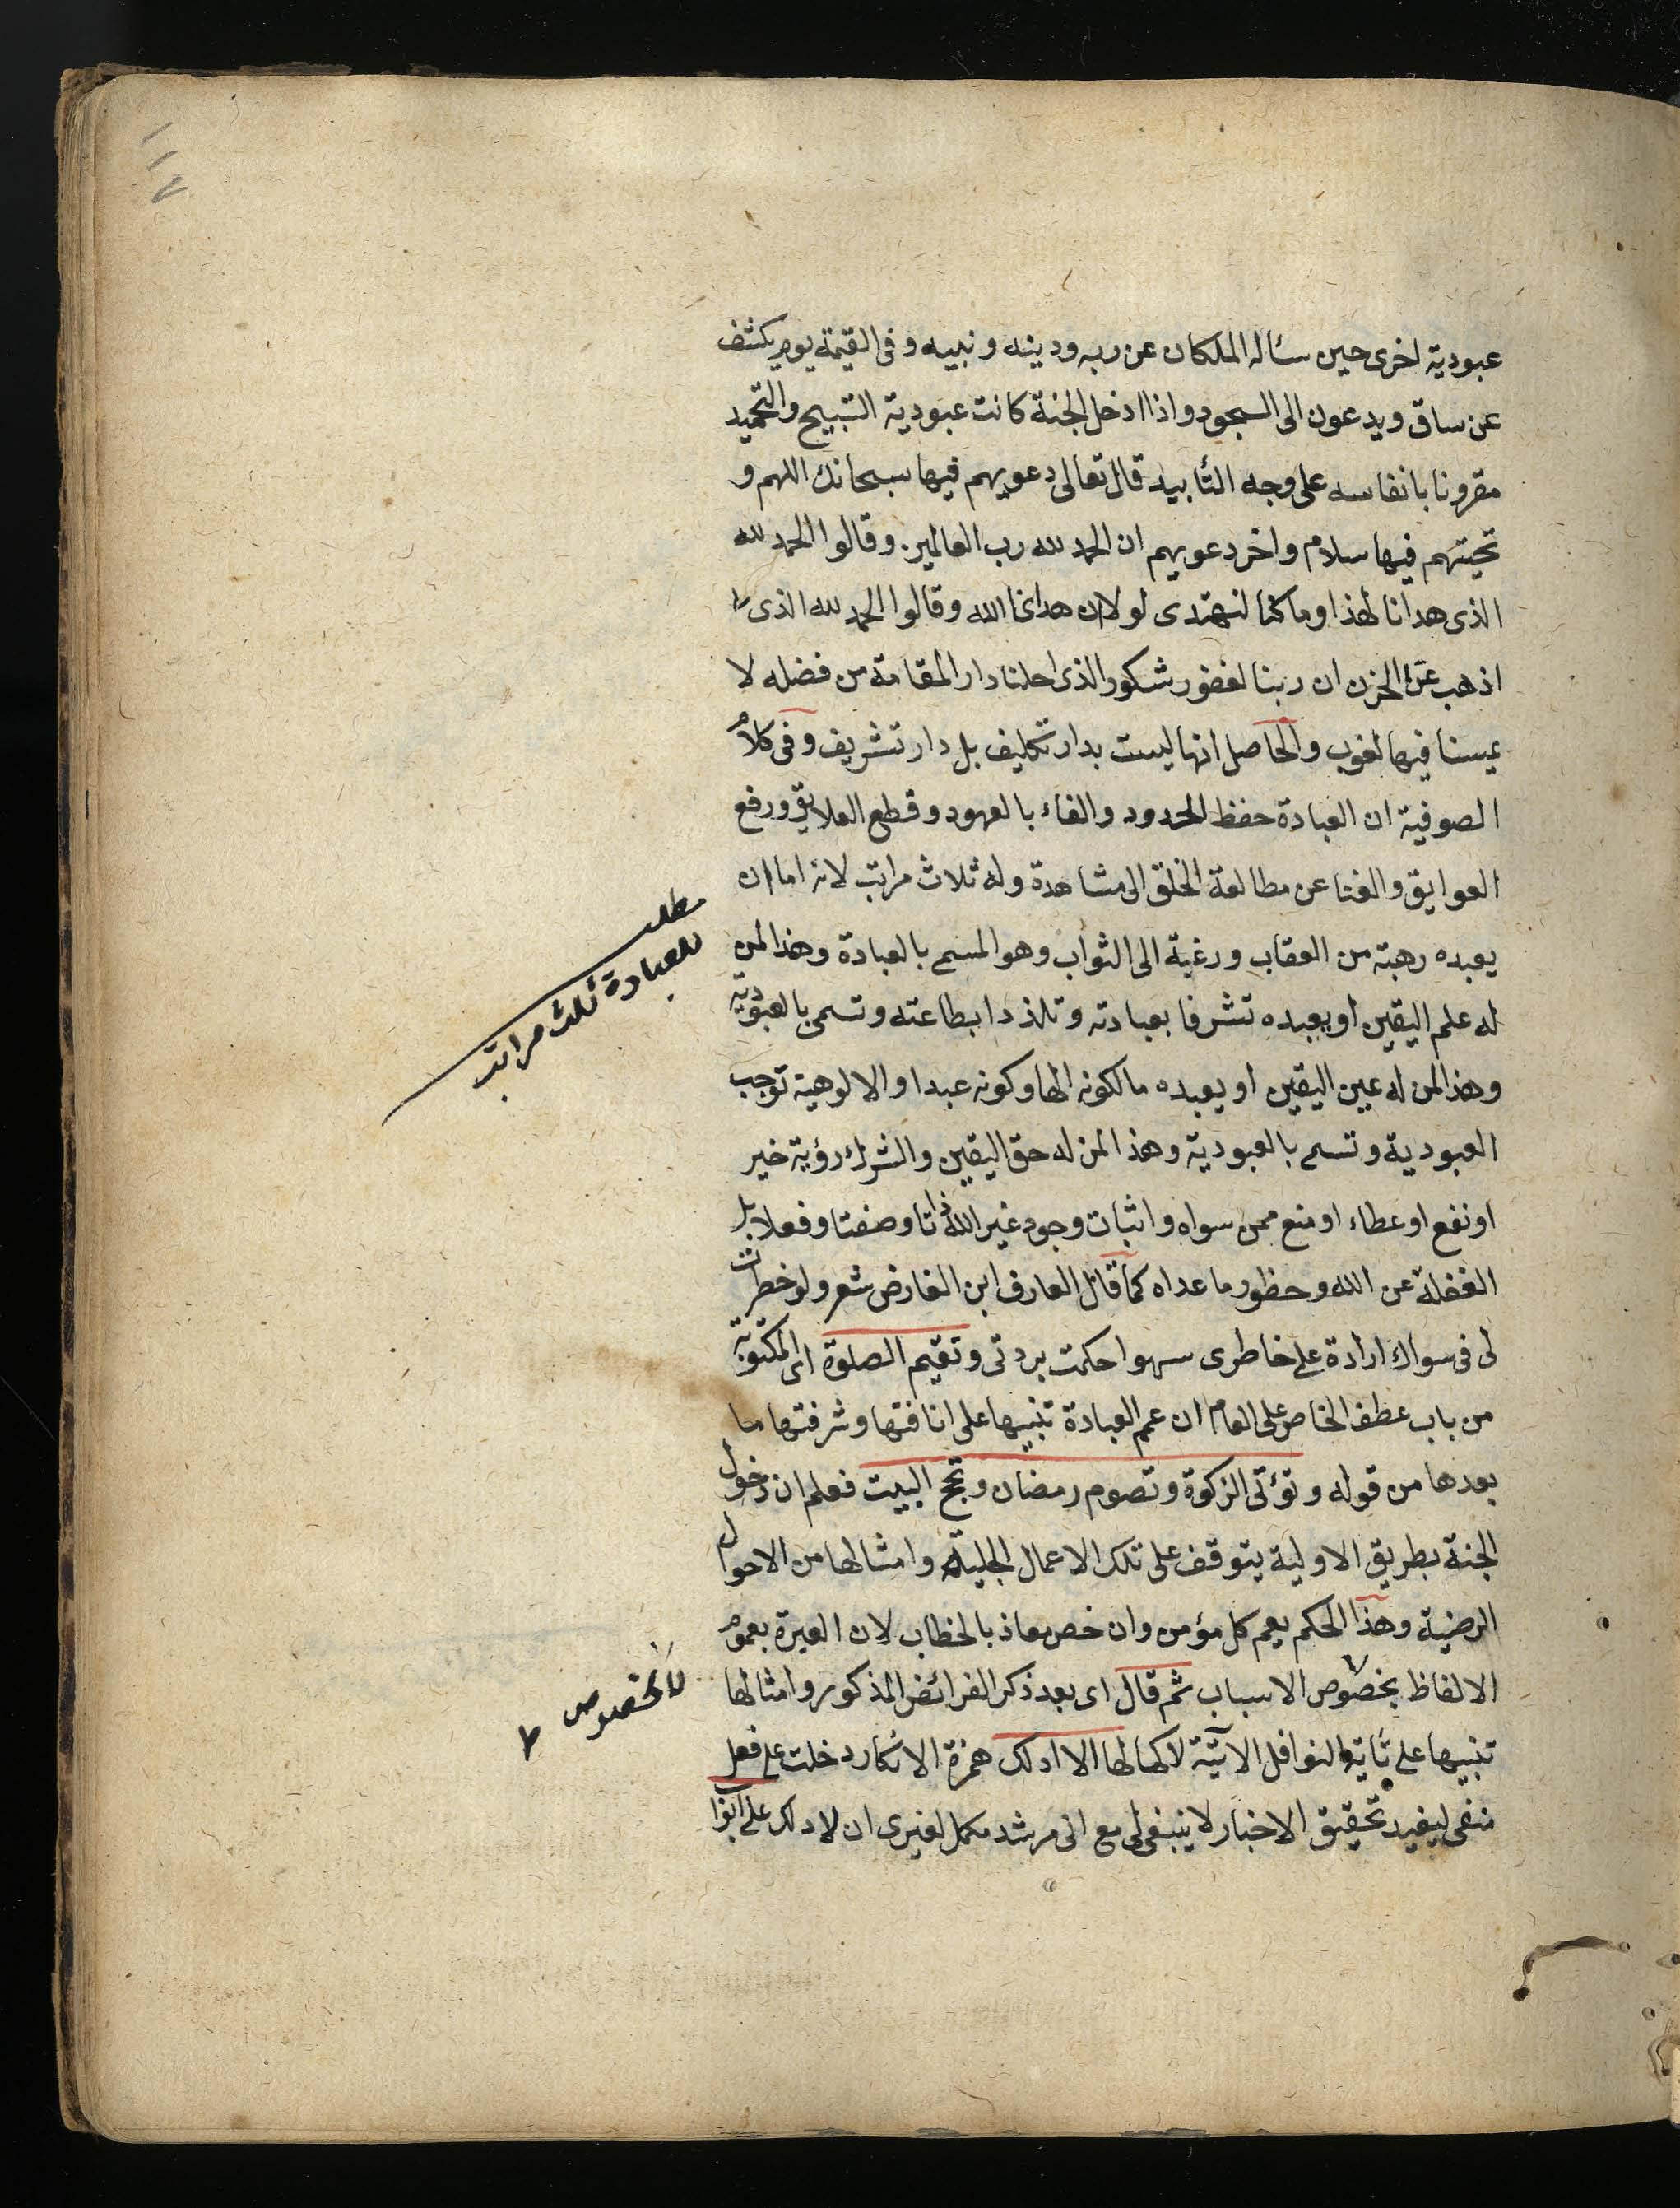 ١١٧
عبودية اخرى حين سئاله الملكان عن ربه ودينه ونبيه وفى القيمة يوم يكشف
عن ساق ويدعون الى السجود واذا ادخل الجنة كانت عبودية التسبيح والتحميد
مقرونا بانفاسه على وجه التأبيد قال تعالى دعويهم فيها سبحانك اللهم و
تحيتهم فيها سلام واخر دعويهم ان الحمد لله رب العالمين وقالوا الحمد لله
الذى هدانا لهذا وما كنا لنهتدى لولا ان هدانا الله وقالوا الحمد لله الذى
اذهب عنا الحزن ان ربنا لغفور شكور الذى احلنا دار المقامة من فضله لا
يمسنا فيها لغوب والحاصل انها ليست بدار تكليف بل دار تشريف وفى كلام
الصوفية ان العبادة حفظ الحدود والفاء بالعهود وقطع العلايق ورفع
العوايق والفنا عن مطالعة الخلق الى مشاهدة وله ثلاث مراتب لانه اما ان
يعبده رهبة من العقاب ورغبة الى الثواب وهو المسمى بالعبادة وهذا لمن
له علم اليقين او يعبده تشرفا بعبادته وتلذذا بطاعته وتسمى بالعبودية
وهذا لمن له عين اليقين او يعبده مالكونه الها وكونه عبدا والالوهية توجب
العبودية وتسمى بالعبودية وهذا لمن له حق اليقين والشرك رؤية خير
او نفع او عطاء او منع ممن سواه واثبات وجود غير الله ذاتا وصفتا وفعلا بل
الغفلة عن الله وحظور ما عداه كما قال العارف ابن الفارض شعر ولو خطرت
لى فى سواك ارادة على خاطرى سهوا حكمت بردتى وتقيم الصلوة اى المكتوبة
من باب عطف الخاص على العام ان عم العبادة تنبيها على انافتها وشرفتها ما
بعدها من قوله وتؤتى الزكوة وتصوم رمضان وتحج البيت فعلم ان دخول
الجنة بطريق الاولية يتوقف على تلك الاعمال الجليلة وامثالها من الاحوال
الرضية وهذا الحكم يعم كل مؤمن وان خص معاذ بالخطاب لان العبرة بعموم
الالفاظ بخصوص الاسباب ثم قال اى بعد ذكر الفرائض المذكور وامثالها
تنبيها على النوافل الاتية لاكمالها الا ادلك همزة الانكار دخلت على فعل
منفى ليفيد تحقيق الاخبار لا ينبغى لى مع انى مرشد مكمل لغيرى ان لا ادلك على ابواب
مطلب
للعبادة ثلث مراتب
لا لخصوص